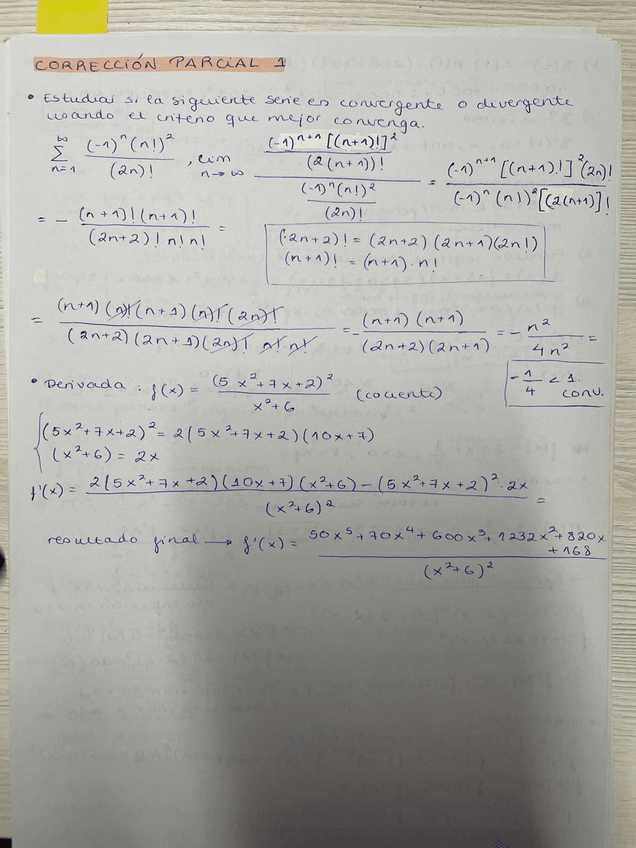 CORRECCIÓN PARCIAL 1
• Estudiar si la siguiente serie es convergente o divergente
usando el criterio que mejor convenga.
∑_{n=1}^{∞} (-1)^n (n!)^2 / (2n)! , lim_{n→∞} ((-1)^{n+1} [(n+1)!]^2 / (2(n+1))!) / ((-1)^n (n!)^2 / (2n)!) = (-1)^{n+1} [(n+1)!]^2 (2n)! / (-1)^n (n!)^2 [(2(n+1)]!
= - (n+1)! (n+1)! / (2n+2)! n! n! =
(2n+2)! = (2n+2) (2n+1) (2n!)
(n+1)! = (n+1) · n!
= (n+1) (n)! (n+1) (n)! (2n)! / (2n+2) (2n+1) (2n)! n! n! = - (n+1) (n+1) / (2n+2) (2n+1) = - n^2 / 4n^2 =
- 1/4 < 1. conv.
• Derivada : f(x) = (5x^2+7x+2)^2 / x^2+6 (cociente)
(5x^2+7x+2)^2 = 2(5x^2+7x+2)(10x+7)
(x^2+6) = 2x
f'(x) = 2(5x^2+7x+2)(10x+7)(x^2+6) - (5x^2+7x+2)^2 · 2x / (x^2+6)^2 =
resultado final → f'(x) = 50x^5+70x^4+600x^3+1232x^2+820x +168 / (x^2+6)^2